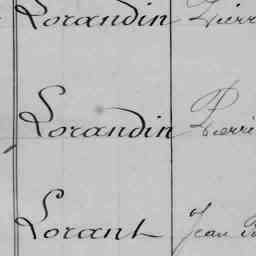 Lorandin Pierr
Lorandin Pierri
Lorant Jean